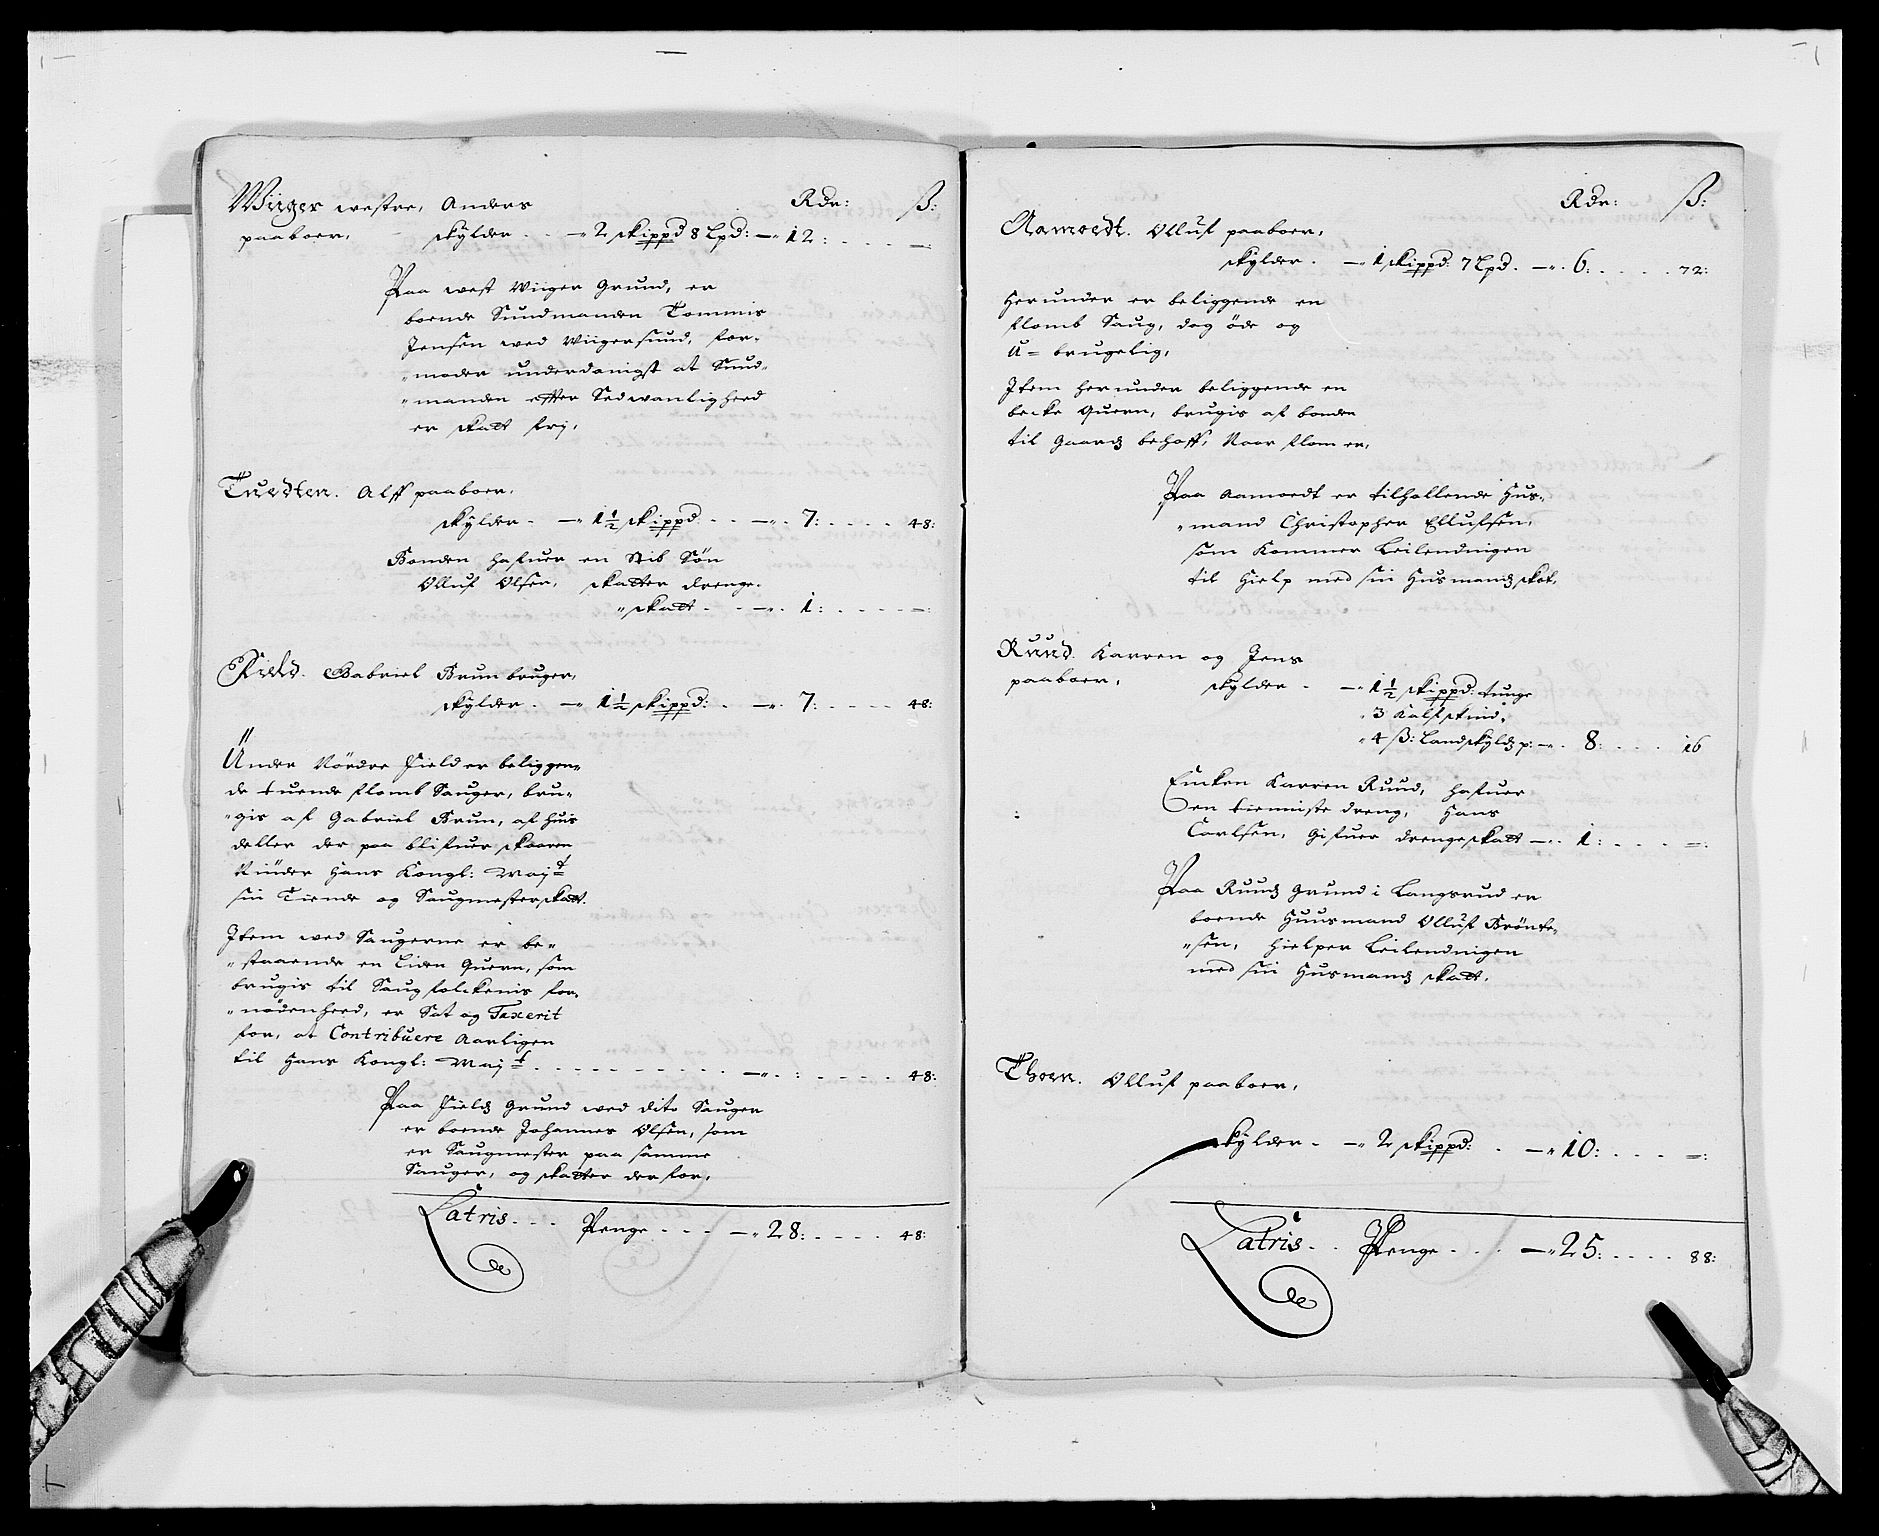 Wiiger westre, Anders Rdr: ß:
paaboer, skylder . . — 2 skippd 8 Lpd: — 12: . . . . —:
Paa west Wiiger Grund, er
boende Sundmanden Tommis
Jensen wed Wiigersund, for-
"moder underdanigst at Sund-
"manden effter Sedwanligheed
er skatt frj,
Tuedten. Alff paaboer,
skylder. — 1½ skippd . . — 7: . . . . 48:
Bonden hafuer en Stib Søn
Olluf Olsen, skatter drenge-
"skatt . . — 1: . . . . —:
Field. Gabriel Brun bruger,
skylder. — 1½ skippd: . — 7: . . . . 48:
Under Nördre Field er beliggen-
de tuende flomb Sauger, bru-
"gis af Gabriel Brun, af huis
deller der paa blifuer skaaren
Niuder Hans Kongl: Mayt
sin Tiende og Saugmesterskatt.
Item wed Saugerne er be-
"staaende en Liden Quern, som
brugis til Saugfolckenis for-
"nödenheed, er Sat og Taxerit
for, at Contribuere Aarligen
til Hans Kongl: Mayt . . . . . . . — . : . . . . 48:
Paa Fields Grund wed dito Sauger
er boende Johannes Olsen, som
er Saugmester paa samme
Sauger, og skatter derfor,
Latris . . . Penge . . . — 28: . . . . 48:
Rdr: ß:
Aamoedt. Olluf paaboer,
skylder. — 1 skippd: 7 Lpd. — 6: . . . . 72:
Herunder er beliggende en
flomb Saug, dog öde og
U= brugelig,
Item herunder beliggende en
becke Quern, brugis af bonden
til Gaards behoff, Naar flom er,
Paa Aamoedt er tilhollende Hus-
"mand Christopher Ellufsen,
som Kommer Leilendingen
til Hielp med sin Husmands skat,
Ruud. Karren og Jens
paaboer, skylder . — 1½ skippd: tunge
" 3 Kalfskind,
" 4 ß: Landskylds p: — 8: . . . . 16
Encken Karren Ruud, hafuer
en tienniste dreng, Hans
Carlsen, Gifuer drengeskatt — 1: . . . . —:
Paa Ruuds Grund i Langsrud er
boende Huusmand Olluf Brönte-
"sen, hielper Leilendingen
med sin Husmands skatt.
Thoen. Olluf paaboer,
skylder. — 2 skippd: . — 10: . . . . —:
Latris . . Penge . . . — 25: . . . . 88: